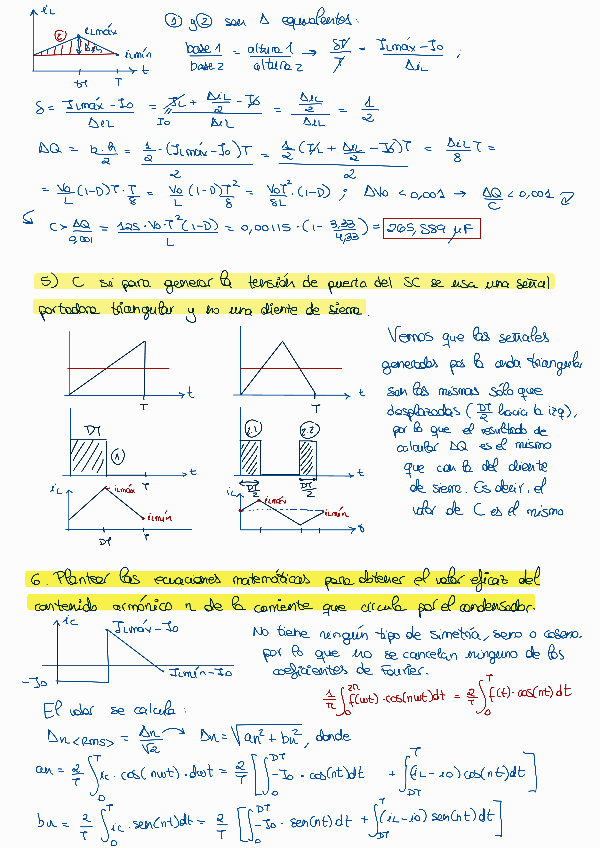 iL
② iLmáx
ΔiL iLmín
t
DT T
① y ② son Δ equivalentes:
base1/base2 = altura1/altura2 → δT/T = ILmáx - Io/ΔiL ;
δ = ILmáx - Io/ΔiL = IL + ΔiL/2 - Io/ΔiL = ΔiL/2/ΔiL = 1/2
Io
ΔQ = b.h/2 = 1/2 · (ILmáx - Io)T/2 = 1/2 (IL + ΔiL/2 - Io)T/2 = ΔiL T/8 =
= Vo/L (1-D)T · T/8 = Vo/L (1-D) T²/8 = VoT²/8L · (1-D) ; ΔVo < 0,001 → ΔQ/C < 0,001
C > ΔQ/0,001 = 125 · Vo · T² (1-D)/L = 0,00115 · (1 - 3,33/4,33) = 265,889 μF
5) C si para generar la tensión de puerta del SC se usa una señal
portadora triangular y no una diente de sierra.
t
T
t
T
Vemos que las señales
generadas por la onda triangular
son las mismas sólo que
desplazadas (DT/2 hacia la izq),
por lo que el resultado de
calcular ΔQ es el mismo
que con la del diente
de sierra. Es decir, el
valor de C es el mismo
DT
①
t
DT/2 DT/2
t
iL iLmáx
iLmín
DT T
t
iL iLmáx
iLmín
6. Plantear las ecuaciones matemáticas para obtener el valor eficaz del
contenido armónico n de la corriente que circula por el condensador.
ic
ILmáx - Io
ILmín - Io
-Io
No tiene ningún tipo de simetría, seno o coseno.
por lo que no se cancelan ninguno de los
coeficientes de Fourier.
1/π ∫₀^2π f(ωt) · cos(nωt) dt = 2/T ∫₀^T f(t) · cos(nt) dt
El valor se calcula:
Δn<RMS> = Δn/√2 → Δn = √an² + bn², donde
an = 2/T ∫₀^T ic · cos(nωt) · dωt = 2/T [∫₀^DT -Io · cos(nt)dt + ∫_DT^T (iL - io) cos(nt)dt]
bn = 2/T ∫₀^T ic · sen(nt)dt = 2/T [∫₀^DT -Io · sen(nt) dt + ∫_DT^T (iL - io) sen(nt)dt]